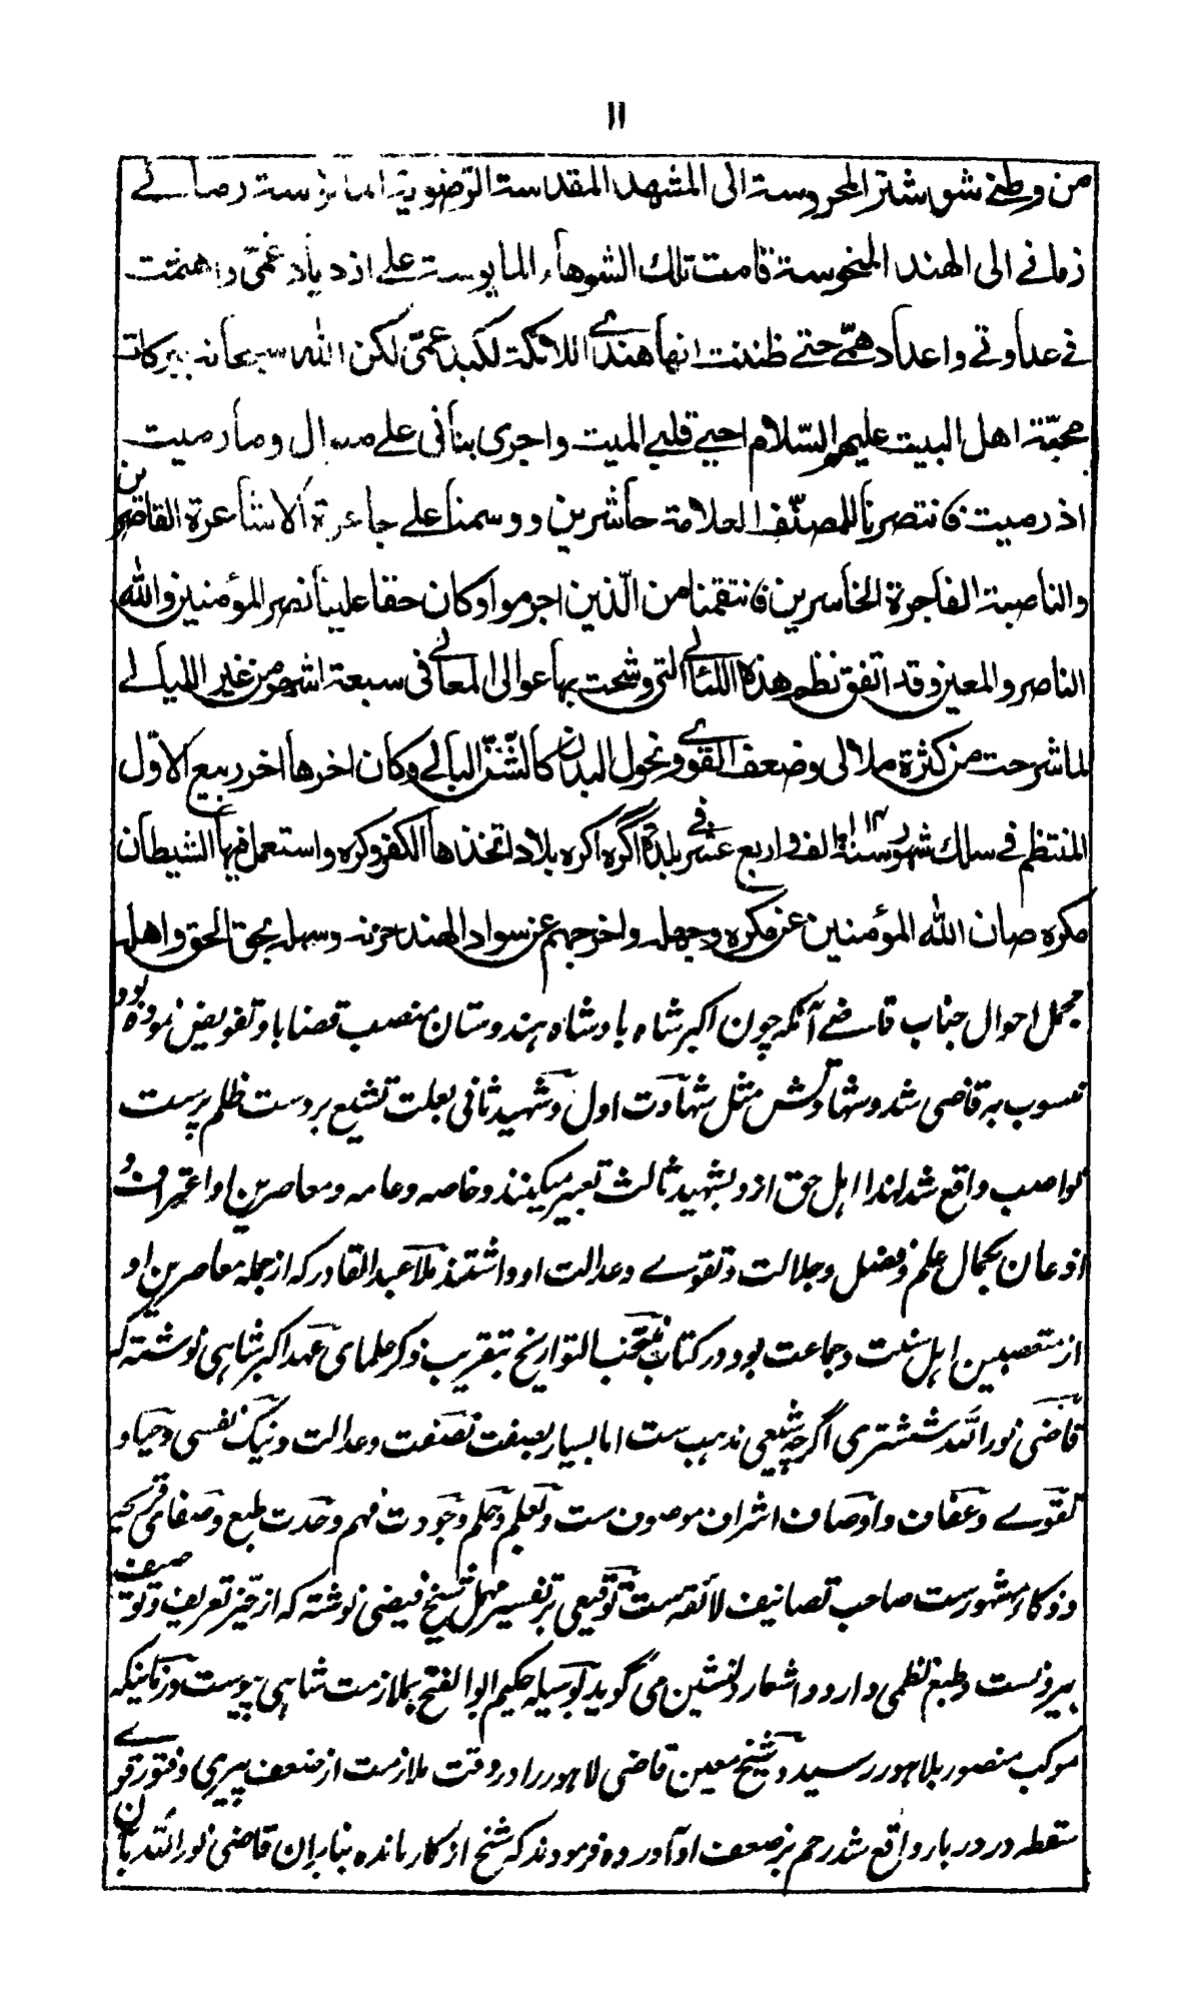 ۱۱
من وطنے شوشتر المحروسة الى المشهد المقدسة الرضوية المانوسة رمانے
زمانے الى الهند المنحوسة قامت تلك الشوهاء المايوسة علے ازدياد غمّى واهتمت
فے عداوتے واعداد همّے حتے ظننت انها هندے اللائكة لكبد عمّى لكن الله سبحانه ببركات
محبّة اهل البيت عليهم السّلام احيے قلبے الميت واجرى بنانى علے منوال وما رميت
اذ رميت فانتصرنا للمصنّف العلامة حاشرين ووسمنا علے جاعرة الاشاعرة القاصرين
والناصبة الفاجرة الخاسرين فانتقمنا من الّذين اجرموا وكان حقا علينا نصر المؤمنين والله
الناصر والمعين وقد اتفق نظم هذه اللئالے التى وشحت بها عوالى المعانے فى سبعة اشهر من غير الليالے
لما شرحت من كثرة ملالى وضعف القوے ونحول البدن كالشّنّ البالے وكان اخرها اخر ربيع الاوّل
المنتظم فے سلك شهور سنة ۱۰۱۴ الف واربع عشر فے بلدة اگره اكره بلاد اتخذها الكفر وكره واستعمل فيها الشيطان
مكره صان الله المؤمنين عن مكره وجهله واخرجهم عن سواد الهند حزنه وسهله بحق الحق واهله
مجمل احوال جناب قاضے آنکه چون اکبر شاه بادشاه هندوستان منصب قضا باو تفویض نموده بود
منسوب به قاضی شد و شهادتش مثل شهادت اول و شهید ثانی بعلت تشیع بر دست ظلم پرست
نواصب واقع شد لهذا اهل حق ازو بشهید ثالث تعبیر میکنند و خاصه و عامه و معاصرین او اعتراف و
اذعان بکمال علم و فضل و جلالت و تقوے و عدالت او داشتند ملا عبدالقادر که از جمله معاصرین او
از متعصبین اهل سنت و جماعت بود در کتاب منتخب التواریخ بتقریب ذکر علمای عهد اکبر شاهی نوشته که
قاضی نورالله ششتری اگرچه شیعی مذهب ست اما بسیار بصفت نصفت و عدالت و نیک نفسی و حیا و
تقوے و عفاف و اوصاف اشراف موصوف ست و بعلم و حلم و جودت فهم و حدت طبع و صفای قریحه
و ذکا مشهورست صاحب تصانیف لائقه ست توقیعی بر تفسیر مهمل شیخ فیضی نوشته که از حیز تعریف و توصیف
بیرونست و طبع نظمی دارد و اشعار دلنشین می گوید بوسیله حکیم ابوالفتح بملازمت شاهی پیوست و زمانیکه
موکب منصور بلاهور رسید و شیخ معین قاضی لاهور را در وقت ملازمت از ضعف پیری و فتور قوے
سقطه در دربار واقع شد رحم بر ضعف او آورده فرمودند که شیخ از کار مانده بنابران قاضی نورالله بآن